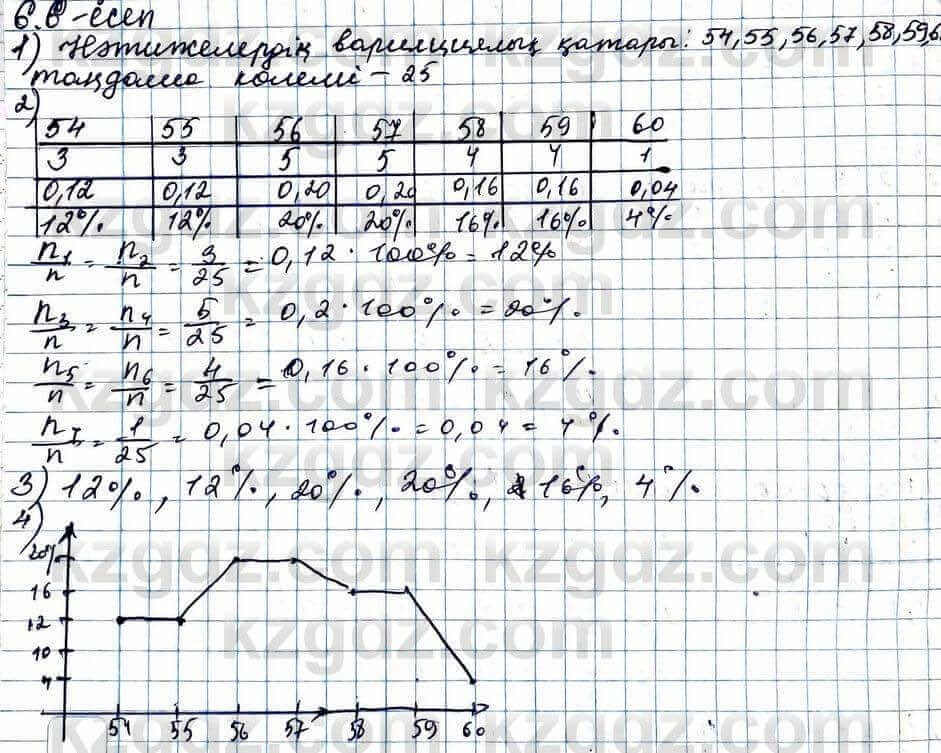 6.6-есеп
1) Нәтижелердің вариациялық қатары: 54,55,56,57,58,59,6
таңдама көлемі - 25
2)
54 55 56 57 58 59 60
3 3 5 5 4 4 1
0,12 0,12 0,20 0,20 0,16 0,16 0,04
12% 12% 20% 20% 16% 16% 4%
n1/n = n2/n = 3/25 = 0,12 · 100% = 12%
n3/n = n4/n = 5/25 = 0,2 · 100% = 20%.
n5/n = n6/n = 4/25 = 0,16 · 100% = 16%.
n7/n = 1/25 = 0,04 · 100% = 0,04 = 4%.
3) 12%, 12%, 20%, 20%, 16%, 4%.
4)
20%
16
12
10
4
54 55 56 57 58 59 60
kzgdz.com